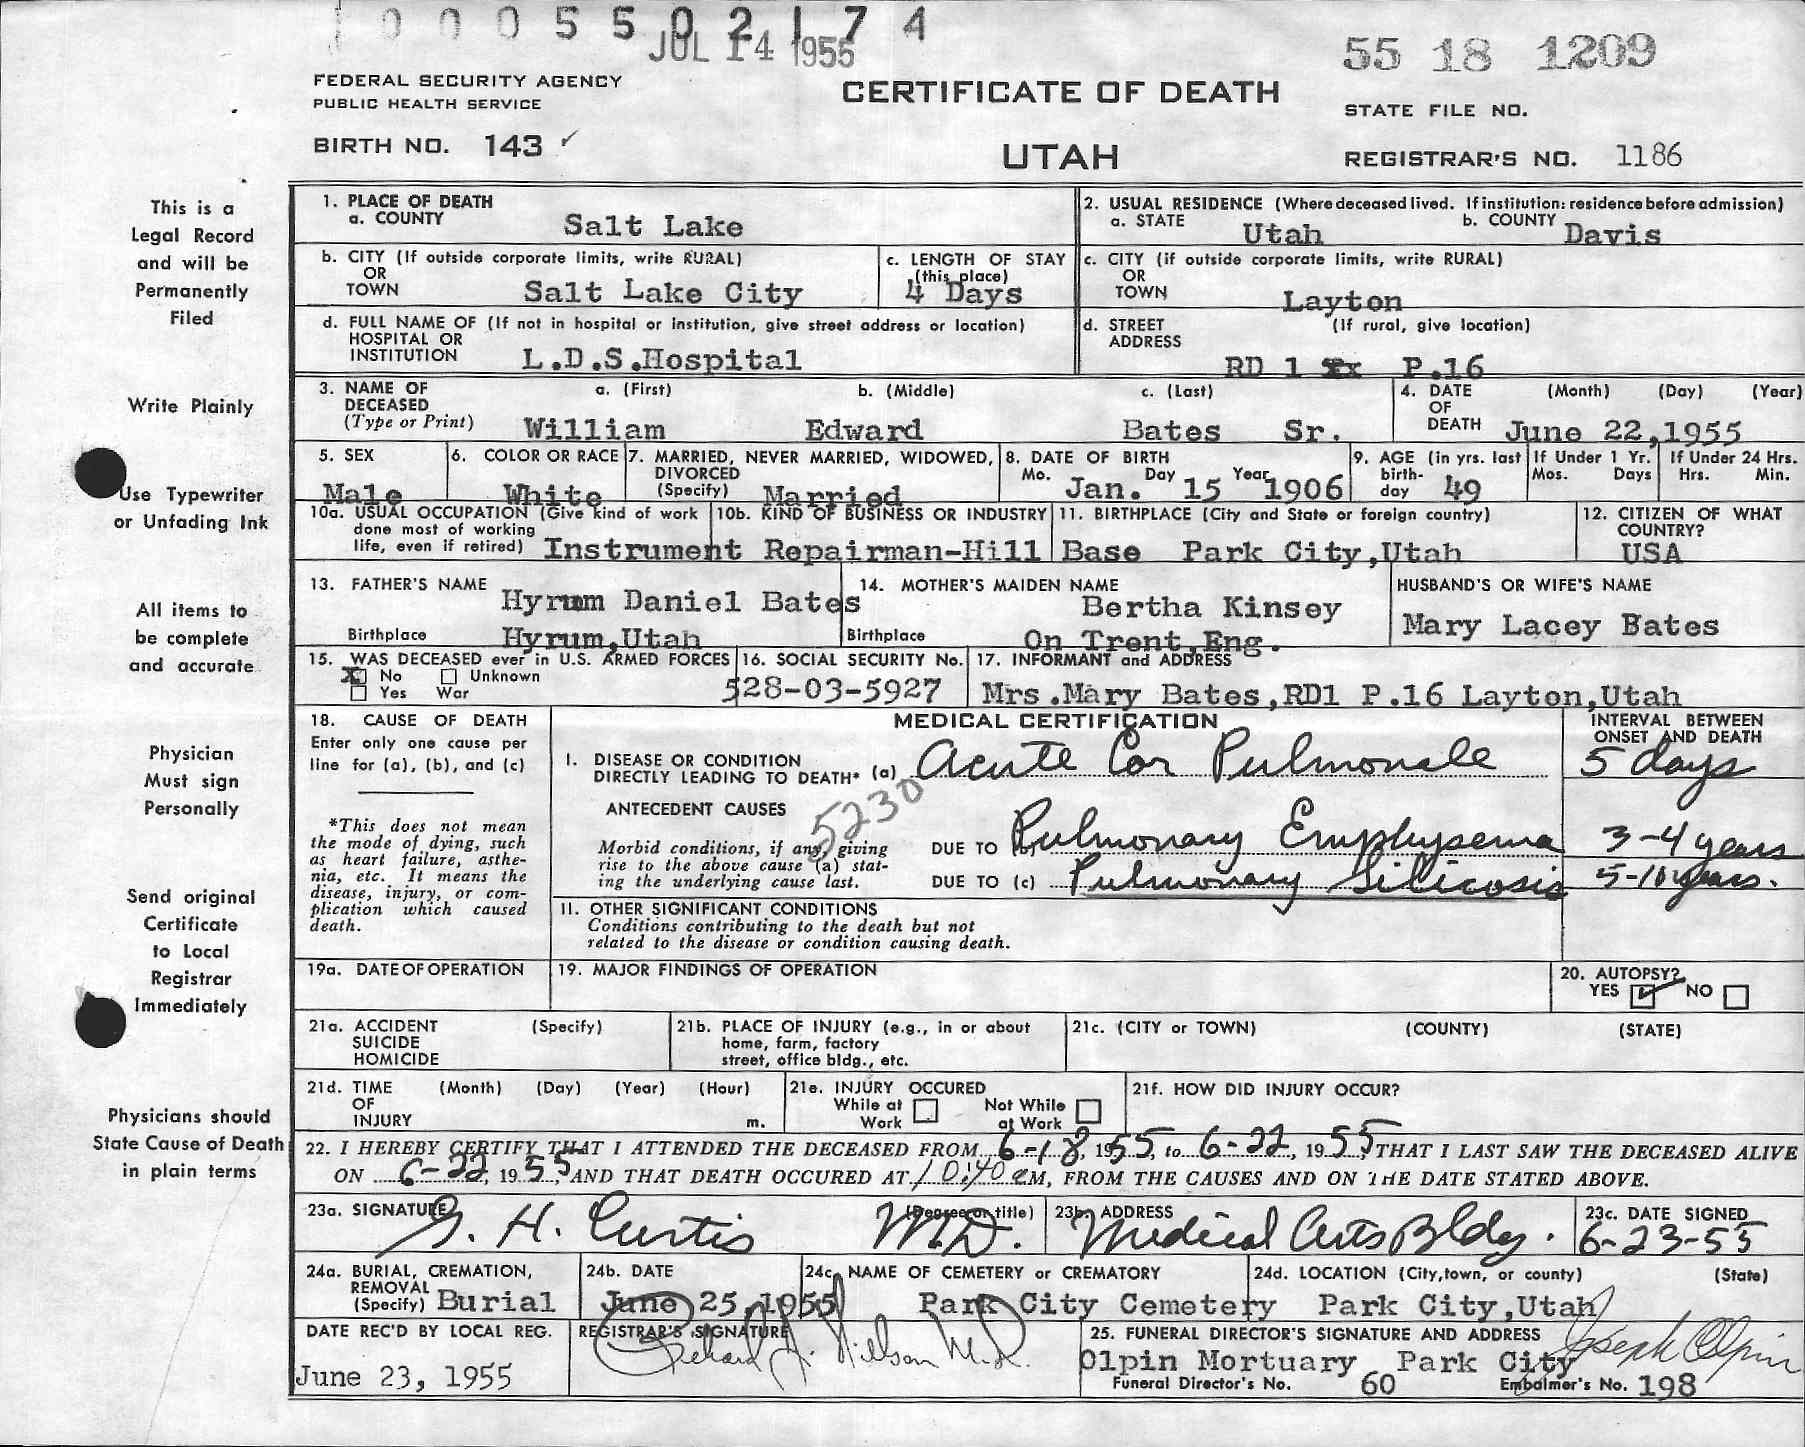 1 0 0 0 5 5 0 2 1 7 4
JUL 14 1955
55 18 1209
FEDERAL SECURITY AGENCY
PUBLIC HEALTH SERVICE
CERTIFICATE OF DEATH
STATE FILE NO.
BIRTH NO. 143 ✓
UTAH
REGISTRAR'S NO. 1186
This is a
Legal Record
and will be
Permanently
Filed
Write Plainly
Use Typewriter
or Unfading Ink
All items to
be complete
and accurate
Physician
Must sign
Personally
Send original
Certificate
to Local
Registrar
Immediately
Physicians should
State Cause of Death
in plain terms
1. PLACE OF DEATH
a. COUNTY Salt Lake
2. USUAL RESIDENCE (Where deceased lived. If institution: residence before admission)
a. STATE Utah b. COUNTY Davis
b. CITY (If outside corporate limits, write RURAL)
OR
TOWN Salt Lake City
c. LENGTH OF STAY
(this place)
4 Days
c. CITY (if outside corporate limits, write RURAL)
OR
TOWN Layton
d. FULL NAME OF (If not in hospital or institution, give street address or location)
HOSPITAL OR
INSTITUTION L.D.S.Hospital
d. STREET (If rural, give location)
ADDRESS
RD 1 P.16
3. NAME OF a. (First) b. (Middle) c. (Last)
DECEASED
(Type or Print) William Edward Bates Sr.
4. DATE (Month) (Day) (Year)
OF
DEATH June 22,1955
5. SEX
Male
6. COLOR OR RACE
White
7. MARRIED, NEVER MARRIED, WIDOWED,
DIVORCED
(Specify) Married
8. DATE OF BIRTH
Mo. Day Year
Jan. 15 1906
9. AGE (in yrs. last
birth-
day 49
If Under 1 Yr.
Mos. Days
If Under 24 Hrs.
Hrs. Min.
10a. USUAL OCCUPATION (Give kind of work
done most of working
life, even if retired) Instrument Repairman-Hill Base
10b. KIND OF BUSINESS OR INDUSTRY
11. BIRTHPLACE (City and State or foreign country)
Park City,Utah
12. CITIZEN OF WHAT
COUNTRY?
USA
13. FATHER'S NAME Hyrum Daniel Bates
Birthplace Hyrum,Utah
14. MOTHER'S MAIDEN NAME
Bertha Kinsey
Birthplace On Trent,Eng.
HUSBAND'S OR WIFE'S NAME
Mary Lacey Bates
15. WAS DECEASED ever in U.S. ARMED FORCES
X No Unknown
Yes War
16. SOCIAL SECURITY No.
528-03-5927
17. INFORMANT and ADDRESS
Mrs.Mary Bates,RD1 P.16 Layton,Utah
18. CAUSE OF DEATH
Enter only one cause per
line for (a), (b), and (c)
*This does not mean
the mode of dying, such
as heart failure, asthe-
nia, etc. It means the
disease, injury, or com-
plication which caused
death.
MEDICAL CERTIFICATION
INTERVAL BETWEEN
ONSET AND DEATH
I. DISEASE OR CONDITION
DIRECTLY LEADING TO DEATH* (a) Acute Cor Pulmonale 5 days
ANTECEDENT CAUSES
5230
Morbid conditions, if any, giving
rise to the above cause (a) stat-
ing the underlying cause last.
DUE TO Pulmonary Emphysema 3-4 years
DUE TO (c) Pulmonary Silicosis 5-10 years.
II. OTHER SIGNIFICANT CONDITIONS
Conditions contributing to the death but not
related to the disease or condition causing death.
19a. DATE OF OPERATION
19. MAJOR FINDINGS OF OPERATION
20. AUTOPSY?
YES ✓ NO
21a. ACCIDENT (Specify)
SUICIDE
HOMICIDE
21b. PLACE OF INJURY (e.g., in or about
home, farm, factory
street, office bldg., etc.
21c. (CITY or TOWN) (COUNTY) (STATE)
21d. TIME (Month) (Day) (Year) (Hour)
OF
INJURY m.
21e. INJURY OCCURED
While at Not While
Work at Work
21f. HOW DID INJURY OCCUR?
22. I HEREBY CERTIFY THAT I ATTENDED THE DECEASED FROM 6-18, 1955, to 6-22, 1955, THAT I LAST SAW THE DECEASED ALIVE
ON 6-22, 1955, AND THAT DEATH OCCURED AT 10:40 aM, FROM THE CAUSES AND ON THE DATE STATED ABOVE.
23a. SIGNATURE (Degree or title)
G. H. Curtis M.D.
23b. ADDRESS
Medical Arts Bldg.
23c. DATE SIGNED
6-23-55
24a. BURIAL, CREMATION,
REMOVAL
(Specify) Burial
24b. DATE
June 25,1955
24c. NAME OF CEMETERY or CREMATORY
Park City Cemetery
24d. LOCATION (City,town, or county) (State)
Park City,Utah
DATE REC'D BY LOCAL REG.
June 23, 1955
REGISTRAR'S SIGNATURE
Richard J. Nilson M.D.
25. FUNERAL DIRECTOR'S SIGNATURE AND ADDRESS
Joseph Olpin
Olpin Mortuary Park City
Funeral Director's No. 60 Embalmer's No. 198